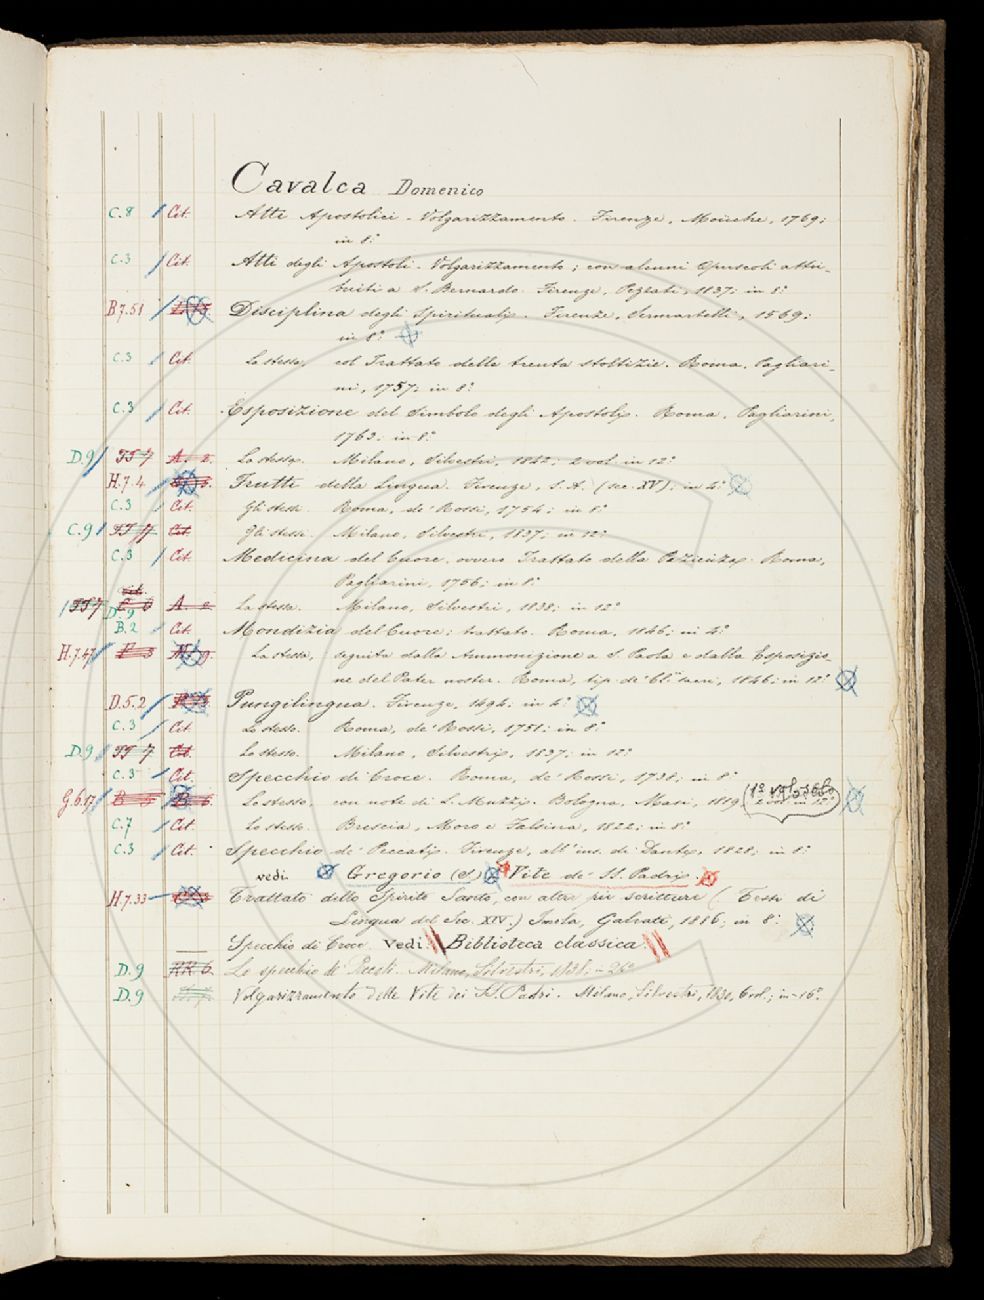 Cavalca Domenico
C.8 Cit. Atti Apostolici - Volgarizzamento. Firenze, Moücke, 1769;
in 8.º
C.3 Cit. Atti degli Apostoli. Volgarizzamento; con alcuni Opuscoli attri-
buiti a S. Bernardo. Firenze, Pezzati, 1837; in 8.º
B.7.51 Disciplina degli Spirituali. Firenze, Sermartelli, 1569;
in 8.º
C.3 Cit. Lo stesso, col Trattato delle trenta stoltizie. Roma, Pagliari-
ni, 1757; in 8.º
C.3 Cit. Esposizione del Simbolo degli Apostoli. Roma, Pagliarini,
1763; in 8.º
D.9 TT 7 A. 2. La stessa. Milano, Silvestri, 1842; 2 vol. in 12.º
H.7.4 Frutti della Lingua. Firenze, S. A. (sec. XV); in 4.º
C.3 Cit. Gli stessi. Roma, de' Rossi, 1754; in 8.º
C.9 TT 7 Cit. Gli stessi. Milano, Silvestri, 1837; in 12.º
C.3 Cit. Medicina del Cuore, ovvero Trattato della Pazienza. Roma,
Pagliarini, 1756; in 8.º
TT 7 D.9 A. 2. La stessa. Milano, Silvestri, 1838; in 12.º
B.2 Cit. Mondizia del Cuore; trattato. Roma, 1846; in 4.º
H.7.47 La stessa, seguita dalla Ammonizione a S. Paola e dalla Esposizio-
ne del Pater noster. Roma, tip. de' 1846; in 12.º
D.5.2 Pungilingua. Firenze, 1494; in 4.º
C.3 Cit. Lo stesso. Roma, de' Rossi, 1751; in 8.º
D.9 TT 7 Cit. Lo stesso. Milano, Silvestri, 1837; in 12.º
C.3 Cit. Specchio di Croce. Roma, de' Rossi, 1738; in 8.º
G.6.17 B. 6. Lo stesso, con note di L. Muzzi. Bologna, Masi, 1819; 2 vol. in 12.º
C.7 Cit. Lo stesso. Brescia, Moro e Falsina, 1822; in 8.º
C.3 Cit. Specchio de' Peccati. Firenze, all'ins. di Dante, 1828; in 8.º
vedi. Gregorio (S.) Vite de' SS. Padri.
H.7.33 Trattato dello Spirito Santo, con altre pie scritture (Testi di
Lingua del Sec. XIV.) Imola, Galeati, 1886; in 8.º
Specchio di Croce. Vedi Biblioteca classica.
D.9 RR 6. Lo specchio de' Peccati. Milano, Silvestri, 1838; in 16.º
D.9 Volgarizzamento delle Vite dei SS. Padri. Milano, Silvestri, 1830, 6 vol.; in-16.º